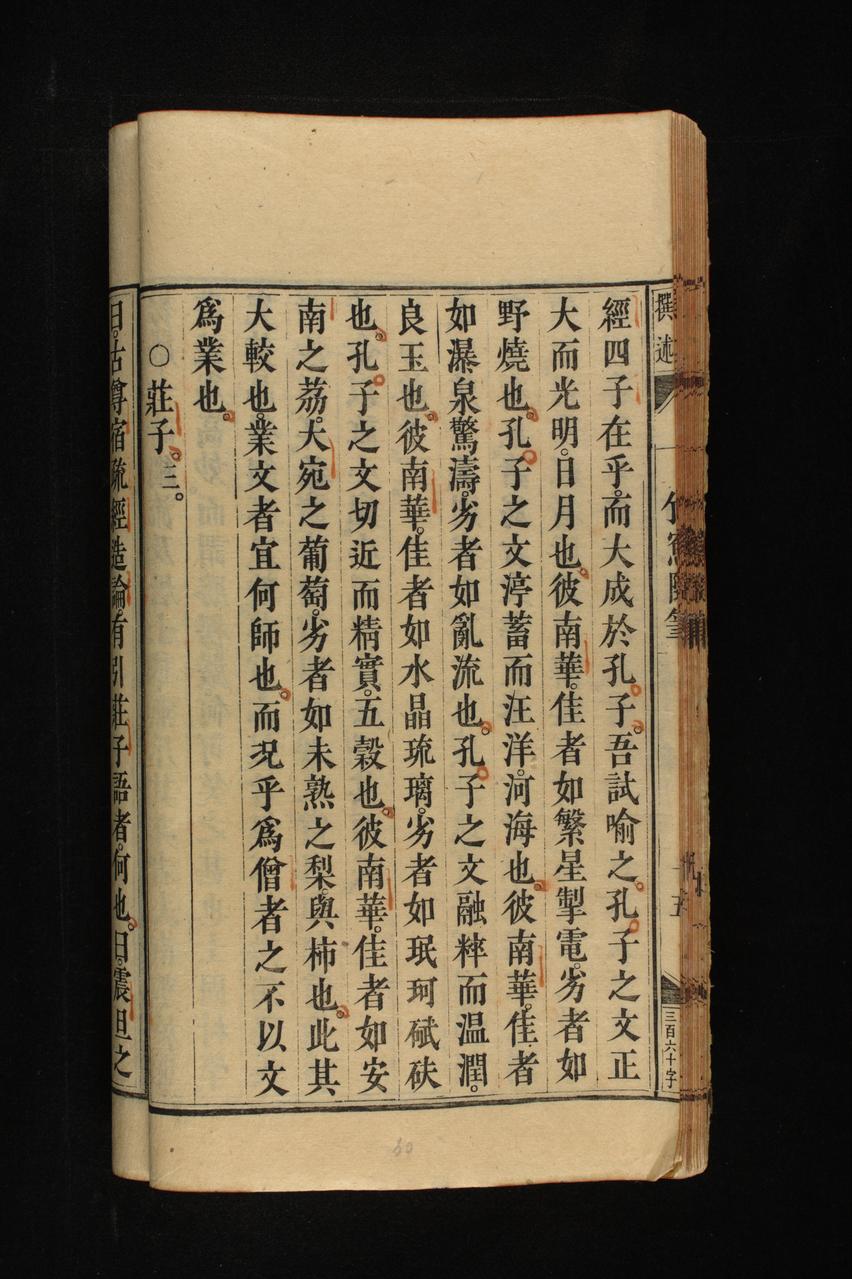 撰述 一 竹窻隨筆 十五 三百六十字
經四子在乎。而大成於孔子。吾試喻之。孔子之文正
大而光明。日月也。彼南華。佳者如繁星掣電。劣者如
野燒也。孔子之文渟蓄而汪洋。河海也。彼南華。佳者
如瀑泉驚濤。劣者如亂流也。孔子之文融粹而温潤。
良玉也。彼南華。佳者如水晶琉璃。劣者如珉珂碔砆
也。孔子之文切近而精實。五穀也。彼南華。佳者如安
南之荔。大宛之葡萄。劣者如未熟之梨與柿也。此其
大較也。業文者宜何師也。而况乎爲僧者之不以文
爲業也。
○莊子。三。
曰。古尊宿疏經造論。有引莊子語者。何也。曰。震旦之